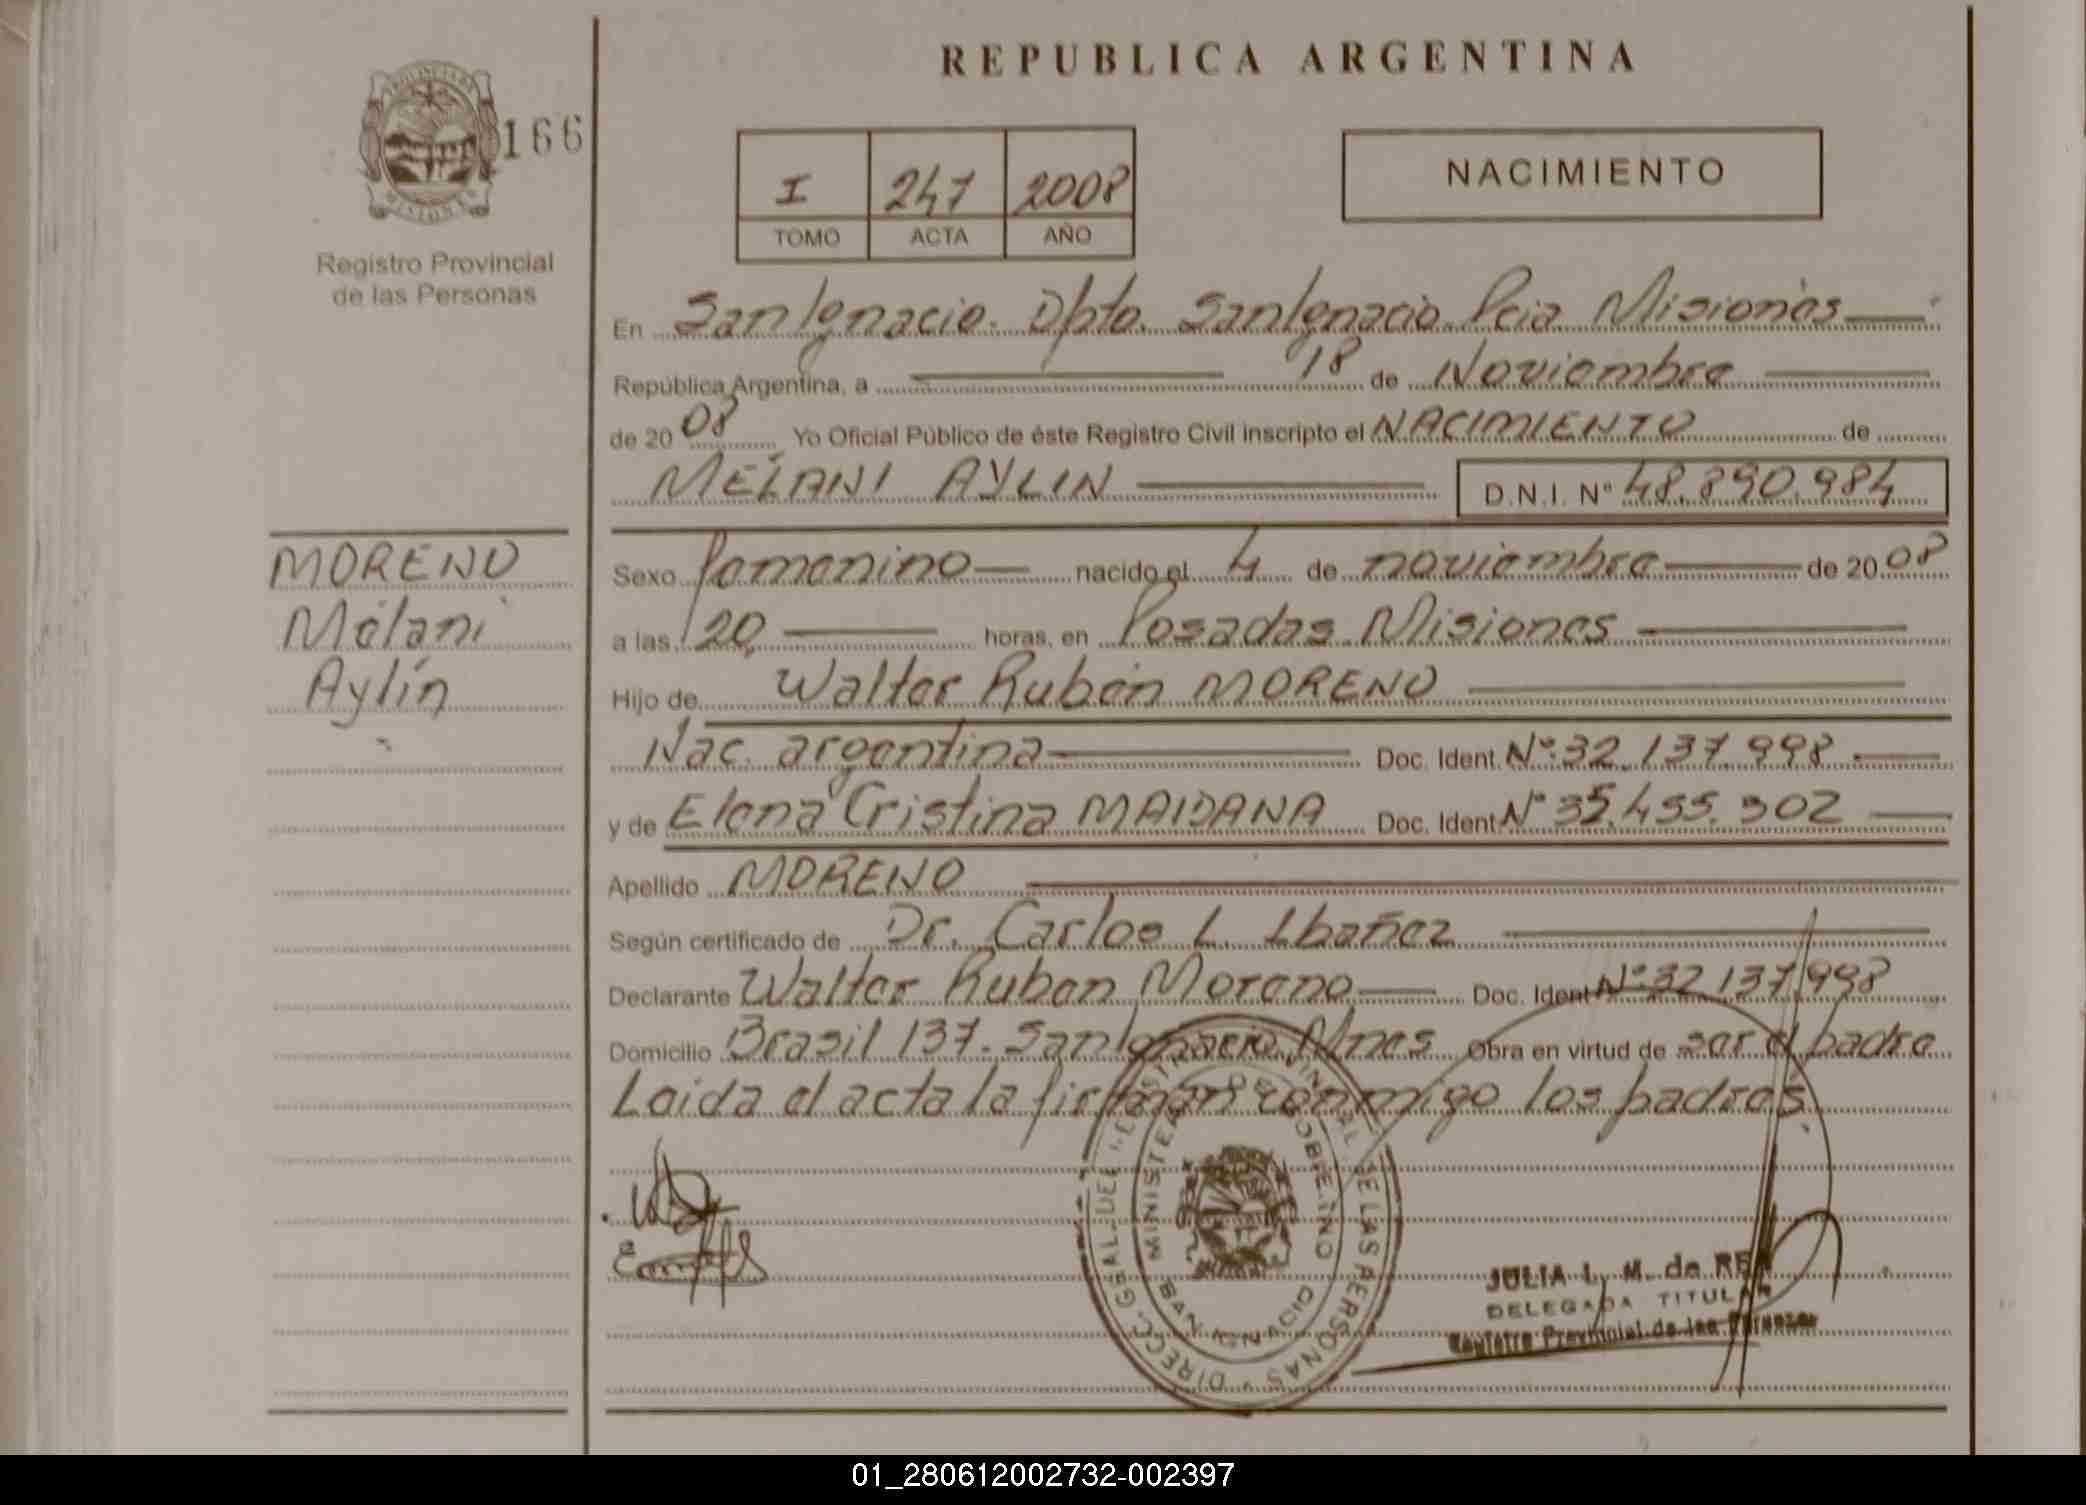 REPUBLICA ARGENTINA
166
MISIONES
Registro Provincial
de las Personas
I 247 2008
TOMO ACTA AÑO
NACIMIENTO
En San Ignacio. Dpto. San Ignacio Pcia Misiones
República Argentina, a 18 de Noviembre
de 2008 Yo Oficial Público de éste Registro Civil inscripto el NACIMIENTO de
MELANI AYLIN D.N.I. Nº 48.890.984
MORENO
Mélani
Aylín
Sexo femenino nacido el 4 de noviembre de 2008
a las 20 horas, en Posadas Misiones
Hijo de Walter Rubén MORENO
Nac. argentina Doc. Ident. Nº 32.137.998
y de Elena Cristina MAIDANA Doc. Ident. Nº 35.455.302
Apellido MORENO
Según certificado de Dr. Carlos L. Ibañez
Declarante Walter Ruben Moreno Doc. Ident Nº 32 137 998
Domicilio Brasil 137. San Ignacio, Mnes Obra en virtud de ser el padre
Leida el acta la firman conmigo los padres.
MINISTERIO DE GOBIERNO
SAN IGNACIO
JULIA L. M. de
DELEGADA TITULAR
Registro Provincial de las Personas
01_280612002732-002397